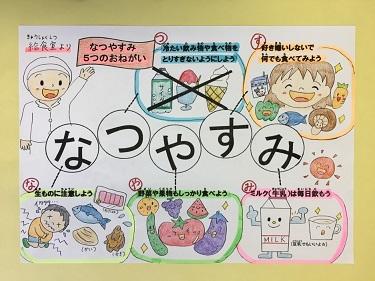 きゅうしょくしつ
給食室より
なつやすみ
5つのおねがい
つ
冷たい飲み物や食べ物を
とりすぎないようにしよう
す
好き嫌いしないで
何でも食べてみよう
なつやすみ
な
生ものに注意しよう
や
野菜や果物もしっかり食べよう
み
ミルク(牛乳)は毎日飲もう
MILK